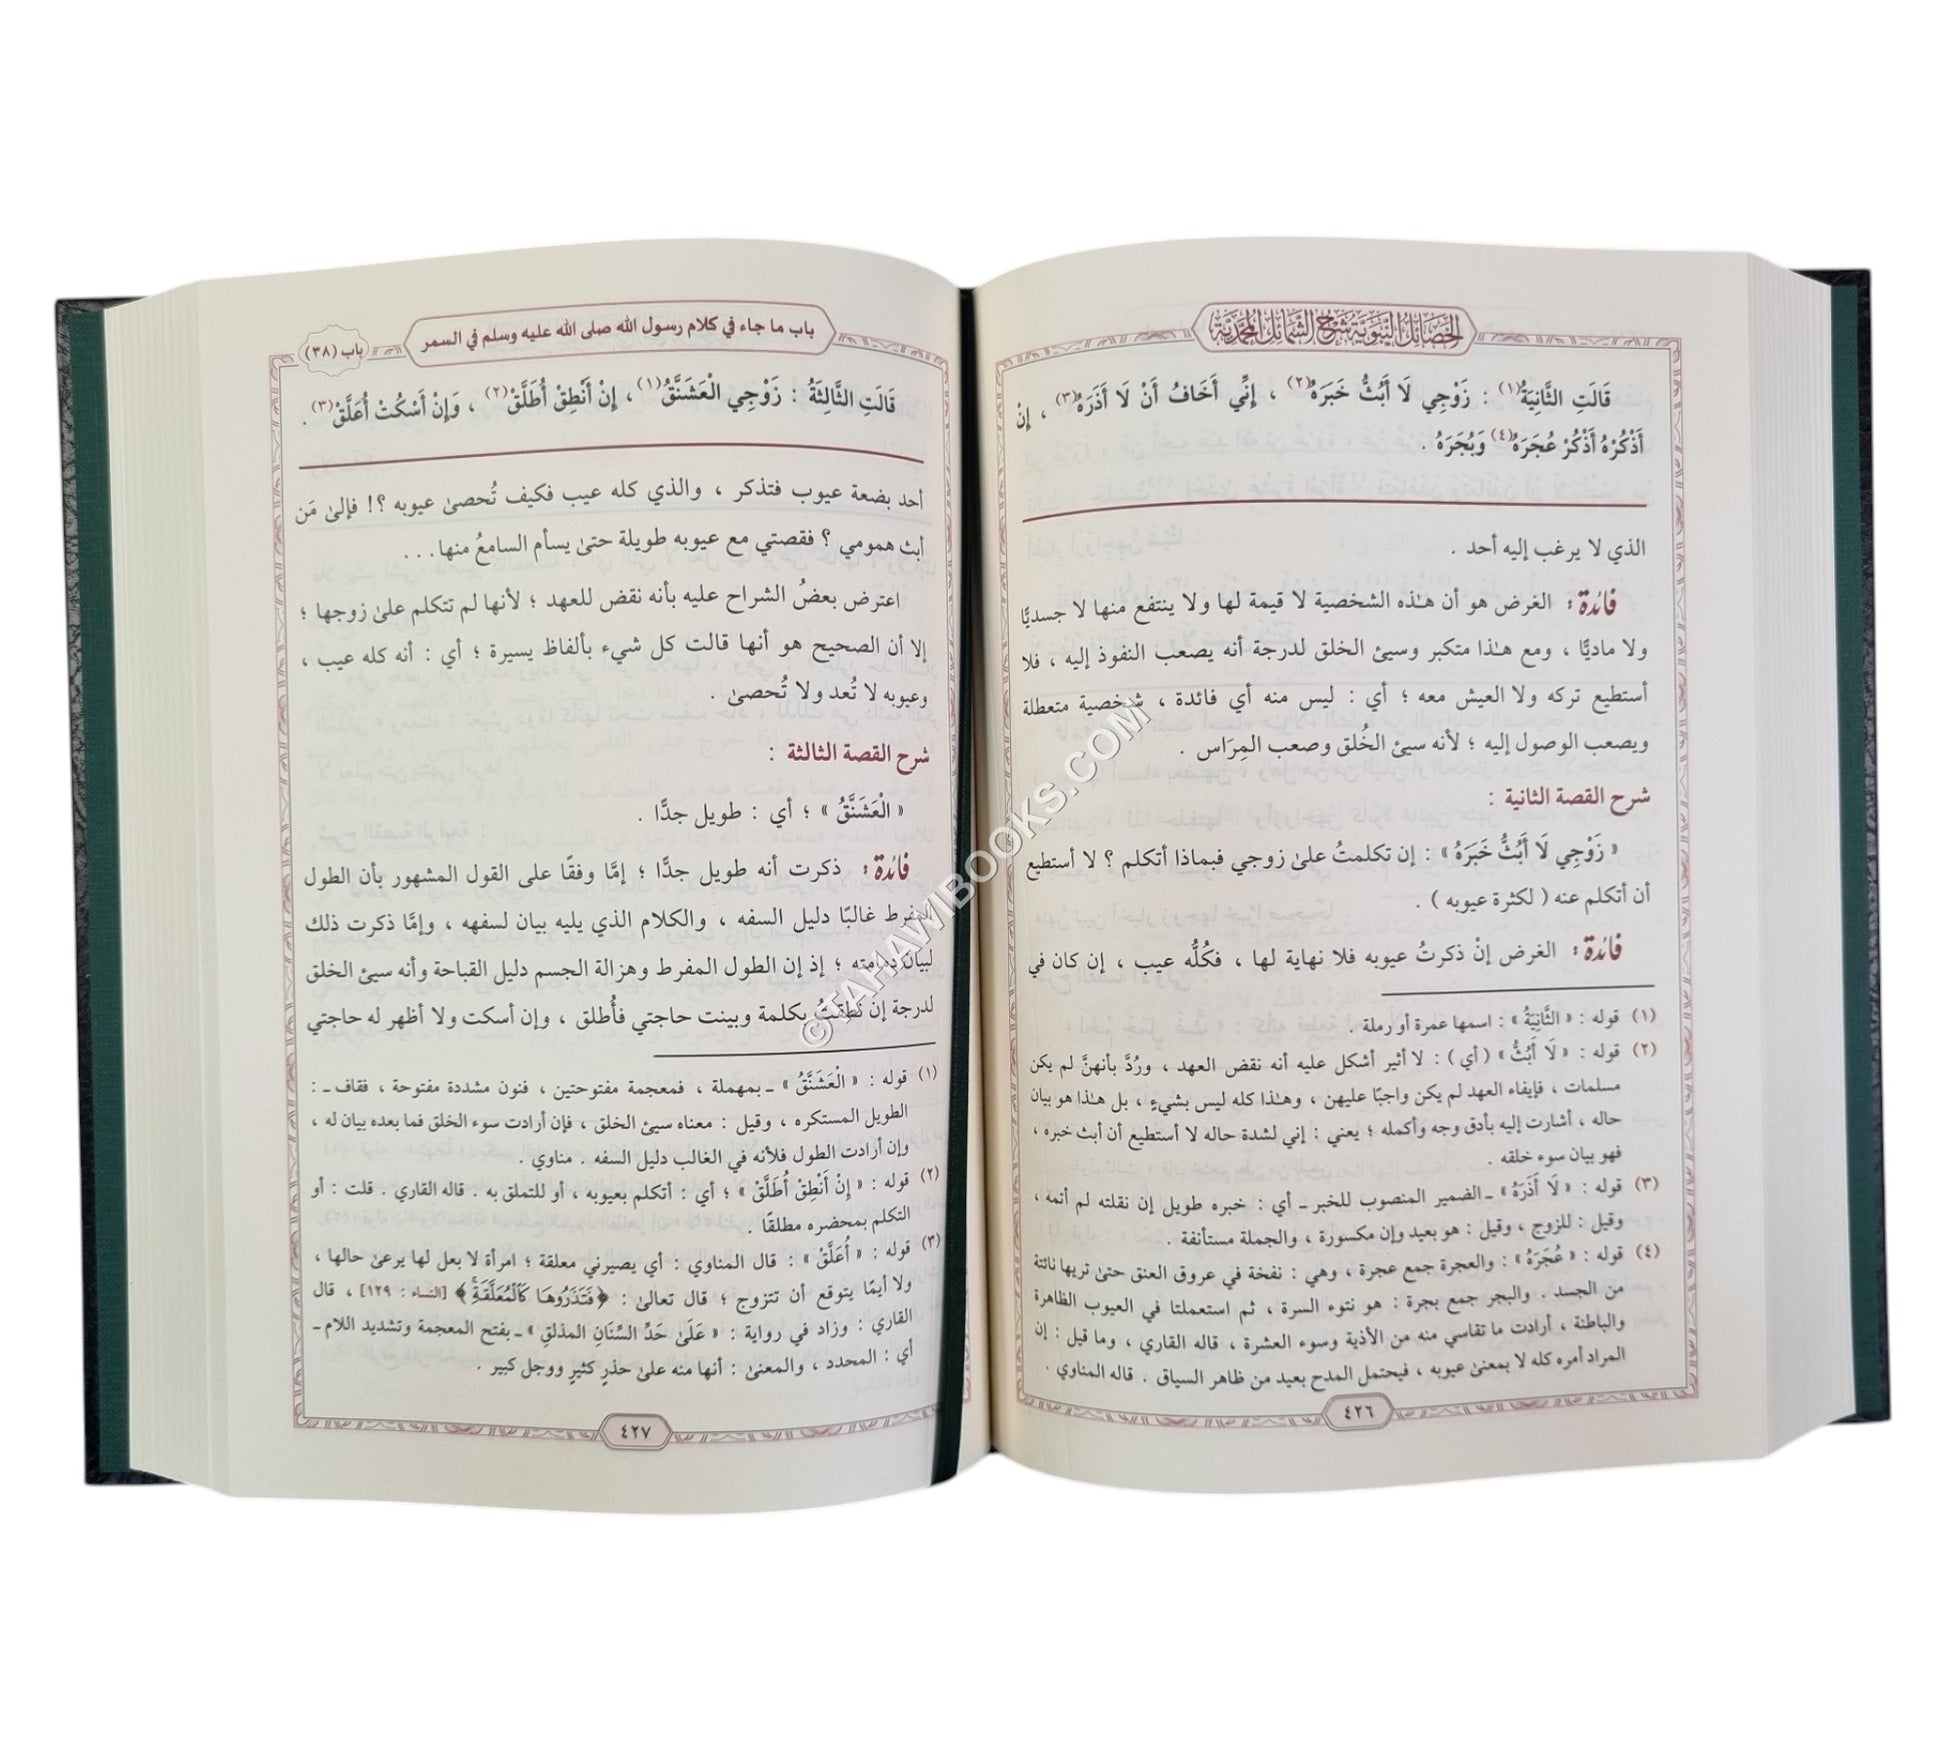 الخصائل النبوية شرح الشمائل المحمدية
قَالَتِ الثَّانِيَةُ(١) : زَوْجِي لَا أَبُثُّ خَبَرَهُ(٢) ، إِنِّي أَخَافُ أَنْ لَا أَذَرَهُ(٣) ، إِنْ
أَذْكُرْهُ أَذْكُرْ عُجَرَهُ(٤) وَبُجَرَهُ .
الذي لا يرغب إليه أحد .
فائدة : الغرض هو أن هـٰذه الشخصية لا قيمة لها ولا ينتفع منها لا جسديًّا
ولا ماديًّا ، ومع هـٰذا متكبر وسيئ الخلق لدرجة أنه يصعب النفوذ إليه ، فلا
أستطيع تركه ولا العيش معه ؛ أي : ليس منه أي فائدة ، شخصية متعطلة
ويصعب الوصول إليه ؛ لأنه سيئ الخُلق وصعب المِرَاس .
شرح القصة الثانية :
« زَوْجِي لَا أَبُثُّ خَبَرَهُ » : إن تكلمتُ علىٰ زوجي فبماذا أتكلم ؟ لا أستطيع
أن أتكلم عنه ( لكثرة عيوبه ) .
فائدة : الغرض إنْ ذكرتُ عيوبه فلا نهاية لها ، فكُلُّه عيب ، إن كان في
(١) قوله : « الثَّانِيَةُ » : اسمها عمرة أو رملة .
(٢) قوله : « لَا أَبُثُّ » ( أي ) : لا أثير أشكل عليه أنه نقض العهد ، ورُدَّ بأنهنَّ لم يكن
مسلمات ، فإيفاء العهد لم يكن واجبًا عليهن ، وهـٰذا كله ليس بشيءٍ ، بل هـٰذا هو بيان
حاله ، أشارت إليه بأدق وجه وأكمله ؛ يعني : إني لشدة حاله لا أستطيع أن أبث خبره ،
فهو بيان سوء خلقه .
(٣) قوله : « لَا أَذَرَهُ » ـ الضمير المنصوب للخبر ـ أي : خبره طويل إن نقلته لم أتمه ،
وقيل : للزوج ، وقيل : هو بعيد وإن مكسورة ، والجملة مستأنفة .
(٤) قوله : « عُجَرَهُ » : والعجرة جمع عجرة ، وهي : نفخة في عروق العنق حتىٰ تريها ناتئة
من الجسد . والبجر جمع بجرة : هو نتوء السرة ، ثم استعملتا في العيوب الظاهرة
والباطنة ، أرادت ما تقاسي منه من الأذية وسوء العشرة ، قاله القاري ، وما قيل : إن
المراد أمره كله لا بمعنىٰ عيوبه ، فيحتمل المدح بعيد من ظاهر السياق . قاله المناوي .
٤٢٦
باب ما جاء في كلام رسول الله صلى الله عليه وسلم في السمر
باب (٣٨)
قَالَتِ الثَّالِثَةُ : زَوْجِي الْعَشَنَّقُ(١) ، إِنْ أَنْطِقْ أُطَلَّقْ(٢) ، وَإِنْ أَسْكُتْ أُعَلَّقْ(٣) .
أحد بضعة عيوب فتذكر ، والذي كله عيب فكيف تُحصىٰ عيوبه ؟! فإلىٰ مَن
أبث همومي ؟ فقصتي مع عيوبه طويلة حتىٰ يسأم السامعُ منها . . .
اعترض بعضُ الشراح عليه بأنه نقض للعهد ؛ لأنها لم تتكلم علىٰ زوجها ؛
إلا أن الصحيح هو أنها قالت كل شيء بألفاظ يسيرة ؛ أي : أنه كله عيب ،
وعيوبه لا تُعد ولا تُحصىٰ .
شرح القصة الثالثة :
« الْعَشَنَّقُ » ؛ أي : طويل جدًّا .
فائدة : ذكرت أنه طويل جدًّا ؛ إمَّا وفقًا على القول المشهور بأن الطول
المفرط غالبًا دليل السفه ، والكلام الذي يليه بيان لسفهه ، وإمَّا ذكرت ذلك
لبيان دمامته ؛ إذ إن الطول المفرط وهزالة الجسم دليل القباحة وأنه سيئ الخلق
لدرجة إن نَطقتُ بكلمة وبينت حاجتي فأُطلق ، وإن أسكت ولا أظهر له حاجتي
(١) قوله : « الْعَشَنَّقُ » ـ بمهملة ، فمعجمة مفتوحتين ، فنون مشددة مفتوحة ، فقاف ـ :
الطويل المستكره ، وقيل : معناه سيئ الخلق ، فإن أرادت سوء الخلق فما بعده بيان له ،
وإن أرادت الطول فلأنه في الغالب دليل السفه . مناوي .
(٢) قوله : « إِنْ أَنْطِقْ أُطَلَّقْ » ؛ أي : أتكلم بعيوبه ، أو للتملق به . قاله القاري . قلت : أو
التكلم بمحضره مطلقًا .
(٣) قوله : « أُعَلَّقْ » : قال المناوي : أي يصيرني معلقة ؛ امرأة لا بعل لها يرعىٰ حالها ،
ولا أيمًا يتوقع أن تتزوج ؛ قال تعالىٰ : ﴿فَتَذَرُوهَا كَٱلْمُعَلَّقَةِ﴾ [النساء : ١٢٩] ، قال
القاري : وزاد في رواية : « عَلَىٰ حَدِّ السِّنَانِ المذلقِ » ـ بفتح المعجمة وتشديد اللام ـ
أي : المحدد ، والمعنىٰ : أنها منه علىٰ حذرٍ كثيرٍ ووجل كبير .
٤٢٧
© TAHAWIBOOKS.COM